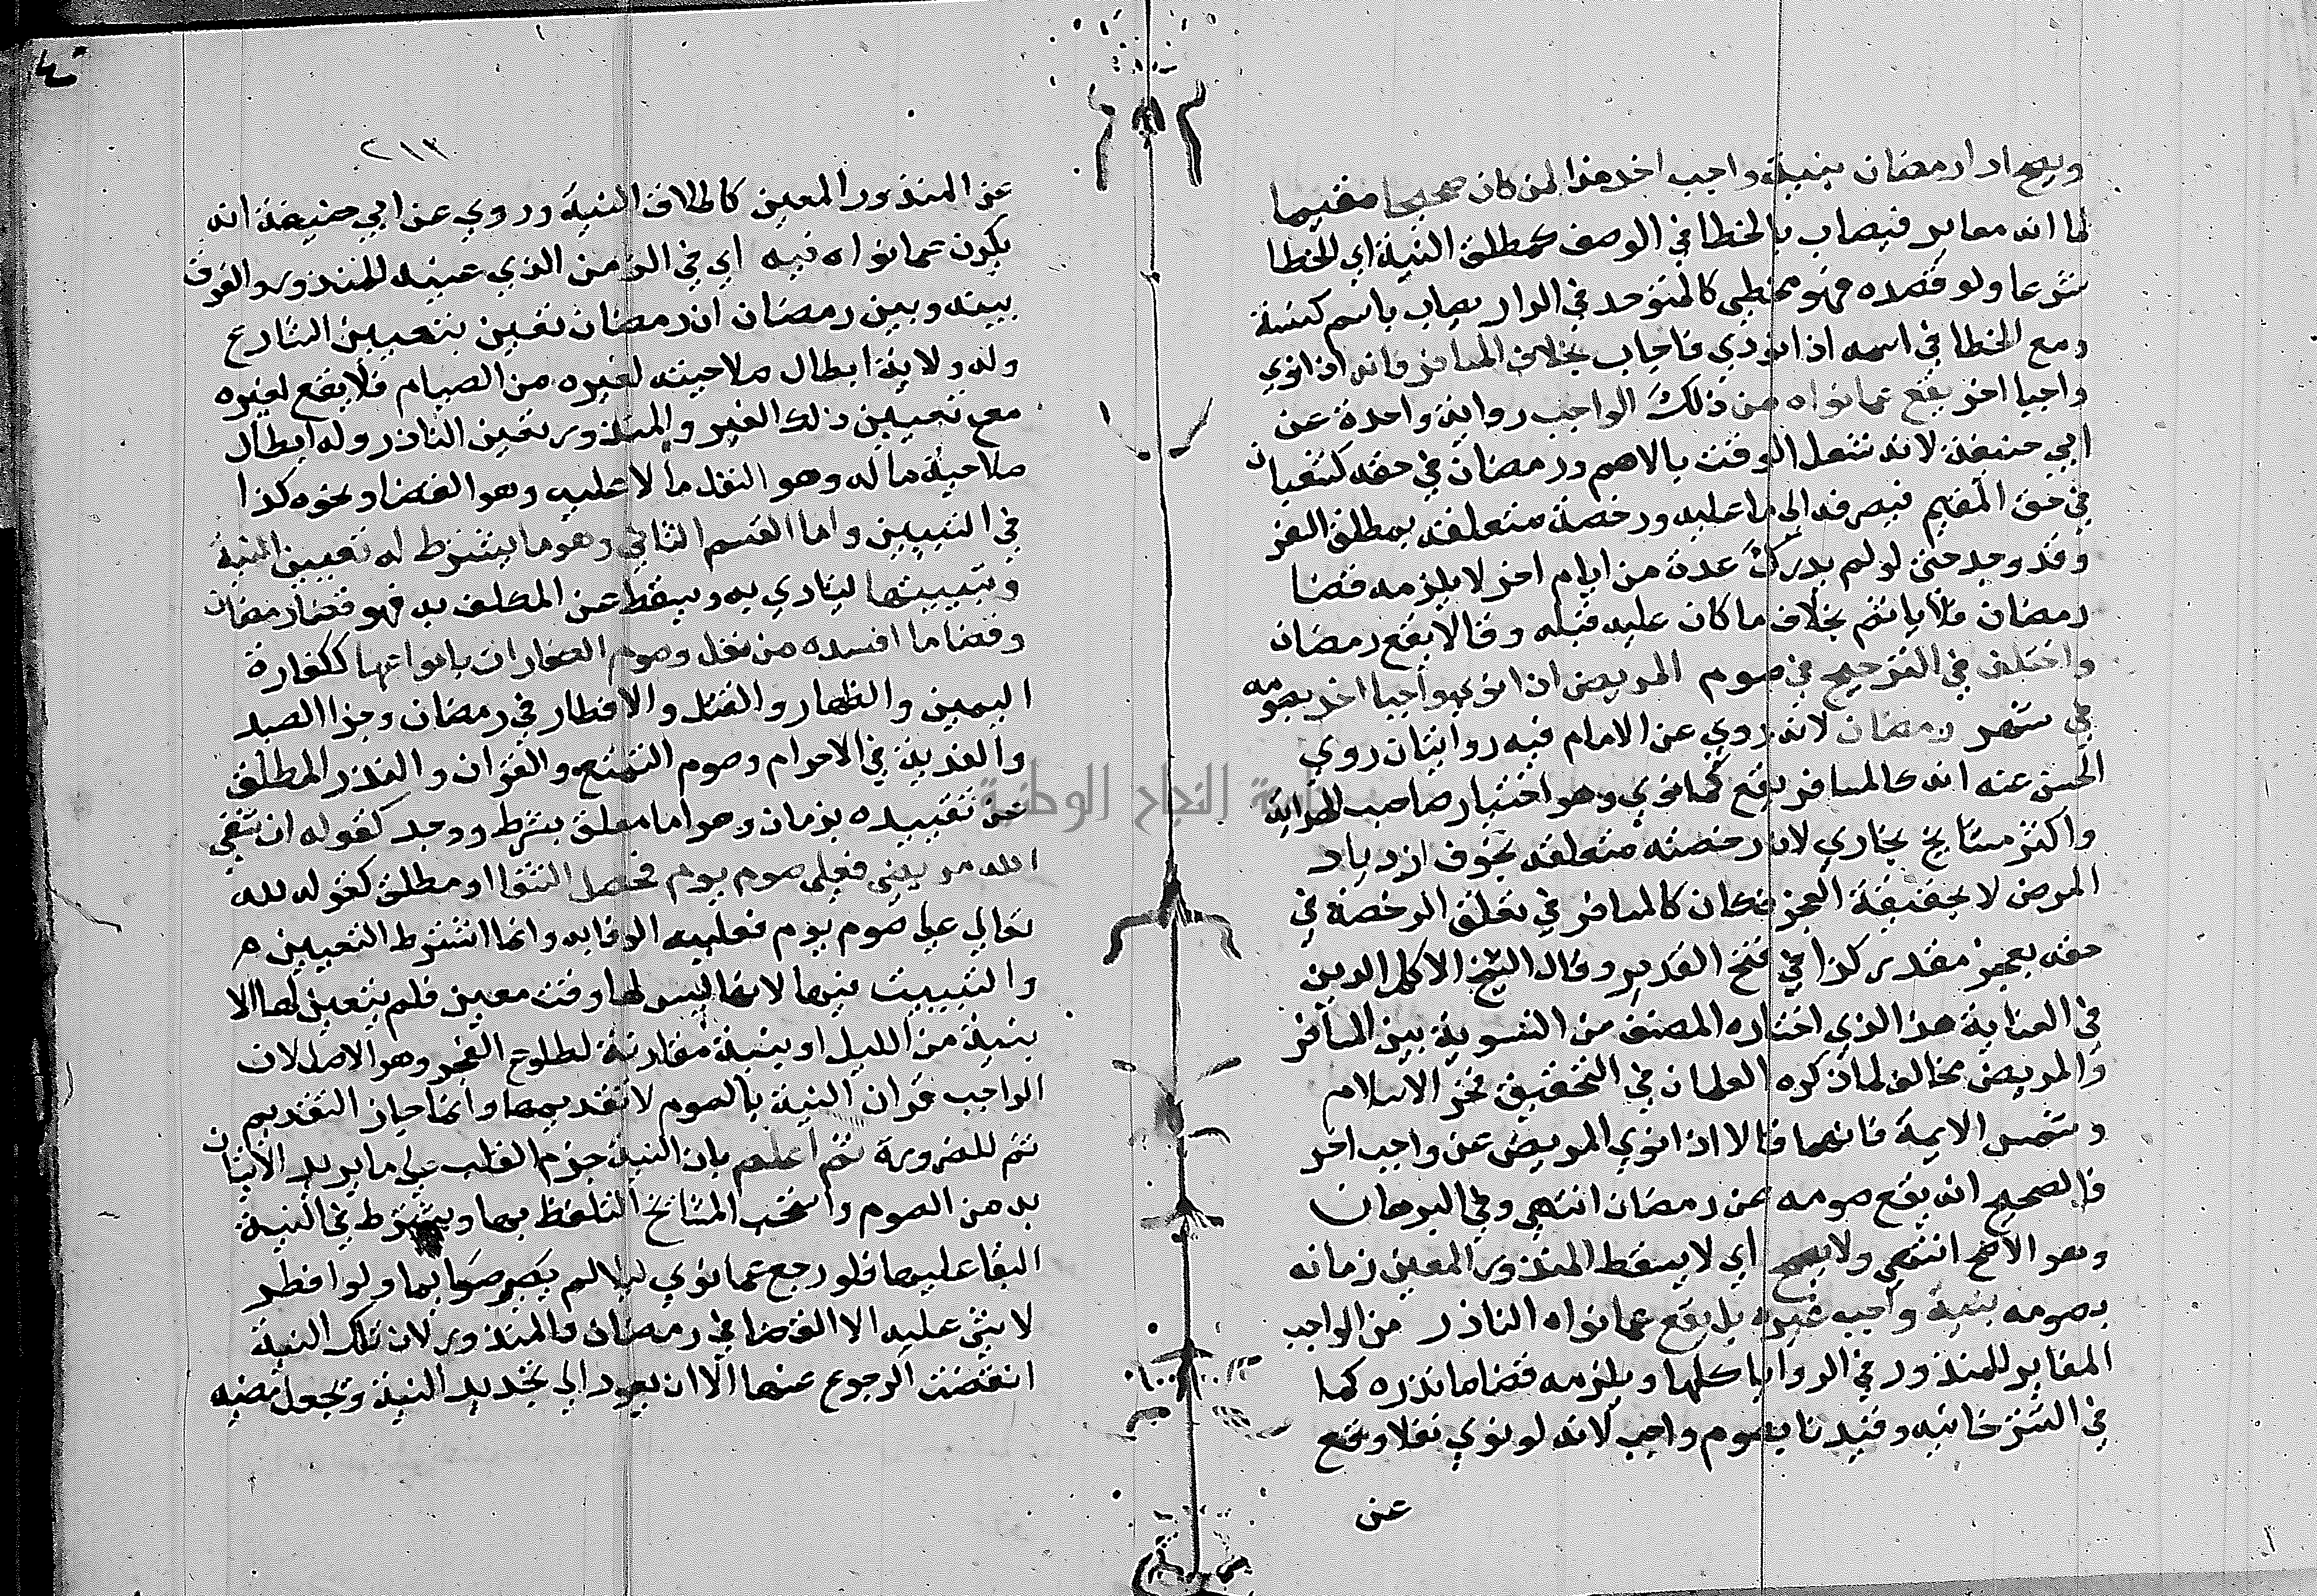 ويصح ادا رمضان بنية واجب اخر هذا لمن كان صحيحا مقيما
لما انه معاير فيصاب بالخطا في الوصف كمطلق النية اي الخطا
شرعا ولو قصده فهو مخطي كالمتوحد في الدار يصاب باسم كنسة
ومع الخطا في اسمه اذا نودي فاجاب بخلاف المسافر فانه اذا نوي
واجبا اخر يقع عما نواه من ذلك الواجب رواية واحدة عن
ابي حنيفة لانه شغل الوقت بالاهم ورمضان في حقه كشعبان
في حق المقيم فيصرفه الي ما عليه ورخصة متعلقة بمطلق السفر
وقد وجد حتي لو لم يدرك عدة من ايام اخر لا يلزمه قضا
رمضان فلا ياثم بخلاف ما كان عليه قبله وقالا يقع رمضان
واختلف في الترجيح في صوم المريض اذا نوي واجبا اخر يصومه
في شهر رمضان لانه روي عن الامام فيه روايتان روي
الحسن عنه انه كالمسافر يقع كما نوي وهو اختيار صاحب الهداية
واكثر مشايخ بخاري لان رخصته متعلقة بخوف ازدياد
المرض لا بحقيقة العجز فكان كالمسافر في تعلق الرخصة في
حقه بعجز مقدر كذا في فتح القدير وقال الشيخ الاكمل الدين
في العناية هذا الذي اختاره المصنف من التسوية بين المسافر
والمريض مخالف لما ذكره العلمان في التحقيق فخر الاسلام
وشمس الايمة فانهما قالا اذا نوي المريض عن واجب اخر
فالصحيح انه يقع صومه عن رمضان انتهي وفي البرهان
وهو الاصح انتهي ولا يصح اي لا يسقط المنذور المعين زمانه
بصومه بنية واجب غيره بل يقع عما نواه الناذر من الواجب
المغاير للمنذور في الروايا كلها ويلزمه قضا ما نذره كما
في التترخانيه وقيدنا بصوم واجب لانه لو نوي نفلا وقع
عن
٢١٣
عن المنذور المعين كاطلاق النية وروي عن ابي حنيفة انه
يكون عما نواه فيه اي في الزمن الذي عينه للمنذور والفرق
بينه وبين رمضان ان رمضان تعين بتعيين الشارع
وله ولاية ابطال صلاحيته لغيره من الصيام فلا يقع لغيره
مع تعيين ذلك الغير والمنذور تعين الناذر وله ابطال
صلاحية ما له وهو النفل ما لا عليه وهو القضا ونحوه كذا
في التبيين واما القسم الثاني وهو ما يشترط له تعيين النية
وتبييتها ليتادي به ويسقط عن المكلف به فهو قضا رمضان
وقضا ما افسده من نفل وصوم الكفارات بانواعها ككفارة
اليمين والظهار والقتل والافطار في رمضان وجزا الصيد
والفدية في الاحرام وصوم التمتع والقران والنذر المطلق
عن تقييده بزمان وهو اما معلق بشرط ووجد كقوله ان شفي
الله مريضي فعلي صوم يوم فحصل الشفا او مطلق كقوله لله
تعالي علي صوم يوم فعليه الوفا به وانما اشترط التعيين
والتبييت فيها لانها ليس لها وقت معين فلم يتعين لها الا
بنية من الليل او بنية مقارنة لطلوع الفجر وهو الاصل لان
الواجب قران النية بالصوم لا تقديمها وانما جاز التقديم
ثم للضرورة ثم اعلم بان النية جزم القلب علي ما يريد الاتيان
به من الصوم واستحب المشايخ التلفظ بها ويشترط في النية
البقا عليها فلو رجع عما نوي ليلا لم يصر صايما ولو افطر
لا شي عليه الا القضا في رمضان والمنذور لان تلك النية
انقضت الرجوع عنها الا ان يعود الي تجديد النية وتجعل مضيه
جامعة النجاح الوطنية